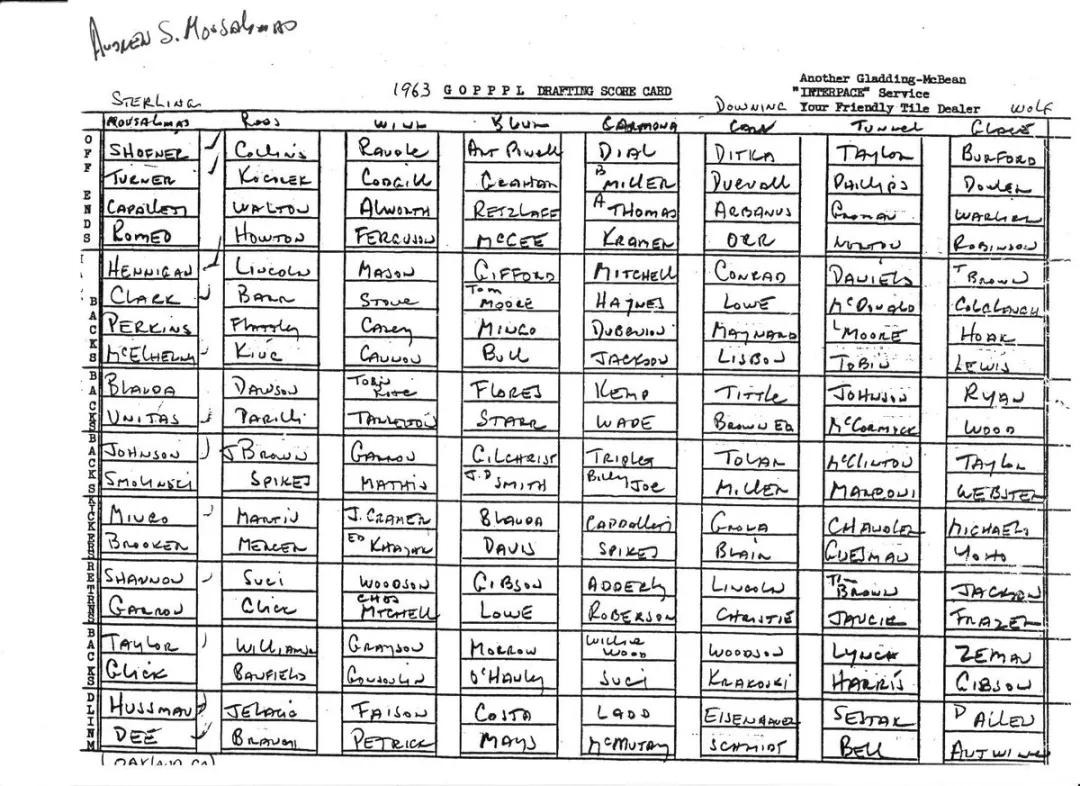 ANDREW S. MOUSALMAS
Another Gladding-McBean
1963 G O P P P L DRAFTING SCORE CARD "INTERPACE" Service
STERLING DOWNING Your Friendly Tile Dealer WOLF
MOUSALMAS ROSS BLUM CARMONA TUNNEL GLASS
OFF ENDS
SHOFNER COLLINS ART POWELL DIAL DITKA TAYLOR BURFORD
TURNER KOCOUREK COGDILL GRAHAM B MILLER DUEVALL PHILLIPS DOWLER
CAPPALLETI WALTON ALWORTH RETZLAFF A THOMAS ARBANUS GROMAN
ROMEO HOWTON FERGUSON McGEE KRAMER ORR NORTON ROBINSON
BACKS
HENNIGAN LINCOLN MASON GIFFORD MITCHELL CONRAD DANIELS T BROWN
CLARK BARR STOVE TOM MOORE HAYNES LOWE McDONALD COLCLOUGH
PERKINS CASEY MINGO DUBENION MAYNARD L MOORE HOAK
McELHENNY KING CANNON BULL JACKSON LISBON TOBIN LEWIS
BACKS
BLANDA DAWSON TOBIN ROTE FLORES KEMP TITTLE JOHNSON RYAN
UNITAS PARILLI TARKENTON STARR WADE BROWN ED McCORMICK WOOD
BACKS
JOHNSON J BROWN GARRON GILCHRIST TRIPLET TOLAR McCLINTON TAYLOR
SMOLINSKI SPIKES MATHIS J.D SMITH BILLY JOE MILLER MARCONI WEBSTER
KICKERS
MINGO MARTIN J. CRAMER BLANDA CAPPALLETI GROZA CHANDLER MICHAELS
BROOKER MERCER ED KHAYAT DAVIS SPIKES BLAIR GUESMAN YOHO
RETRNS
SHANNON SUCI WOODSON GIBSON ADDERLY LINCOLN TIM BROWN JACKSON
GARRON GLICK MITCHELL LOWE ROBERSON CHRISTIE JANCIK FRAZER
BACKS
TAYLOR WILLIAMS GRAYSON MORROW WILLIE WOOD WOODSON LYNCH ZEMAN
GLICK BANFIELD GONSOULIN O'HANLY SUCI KRAKOSKI HARRIS GIBSON
DLINM
HUSSMAN JELACIC FAISON COSTA LADD EISENHAUER SESTAK D ALLEN
DEE PETRICK MAYS SCHMIDT BELL ANTWINE